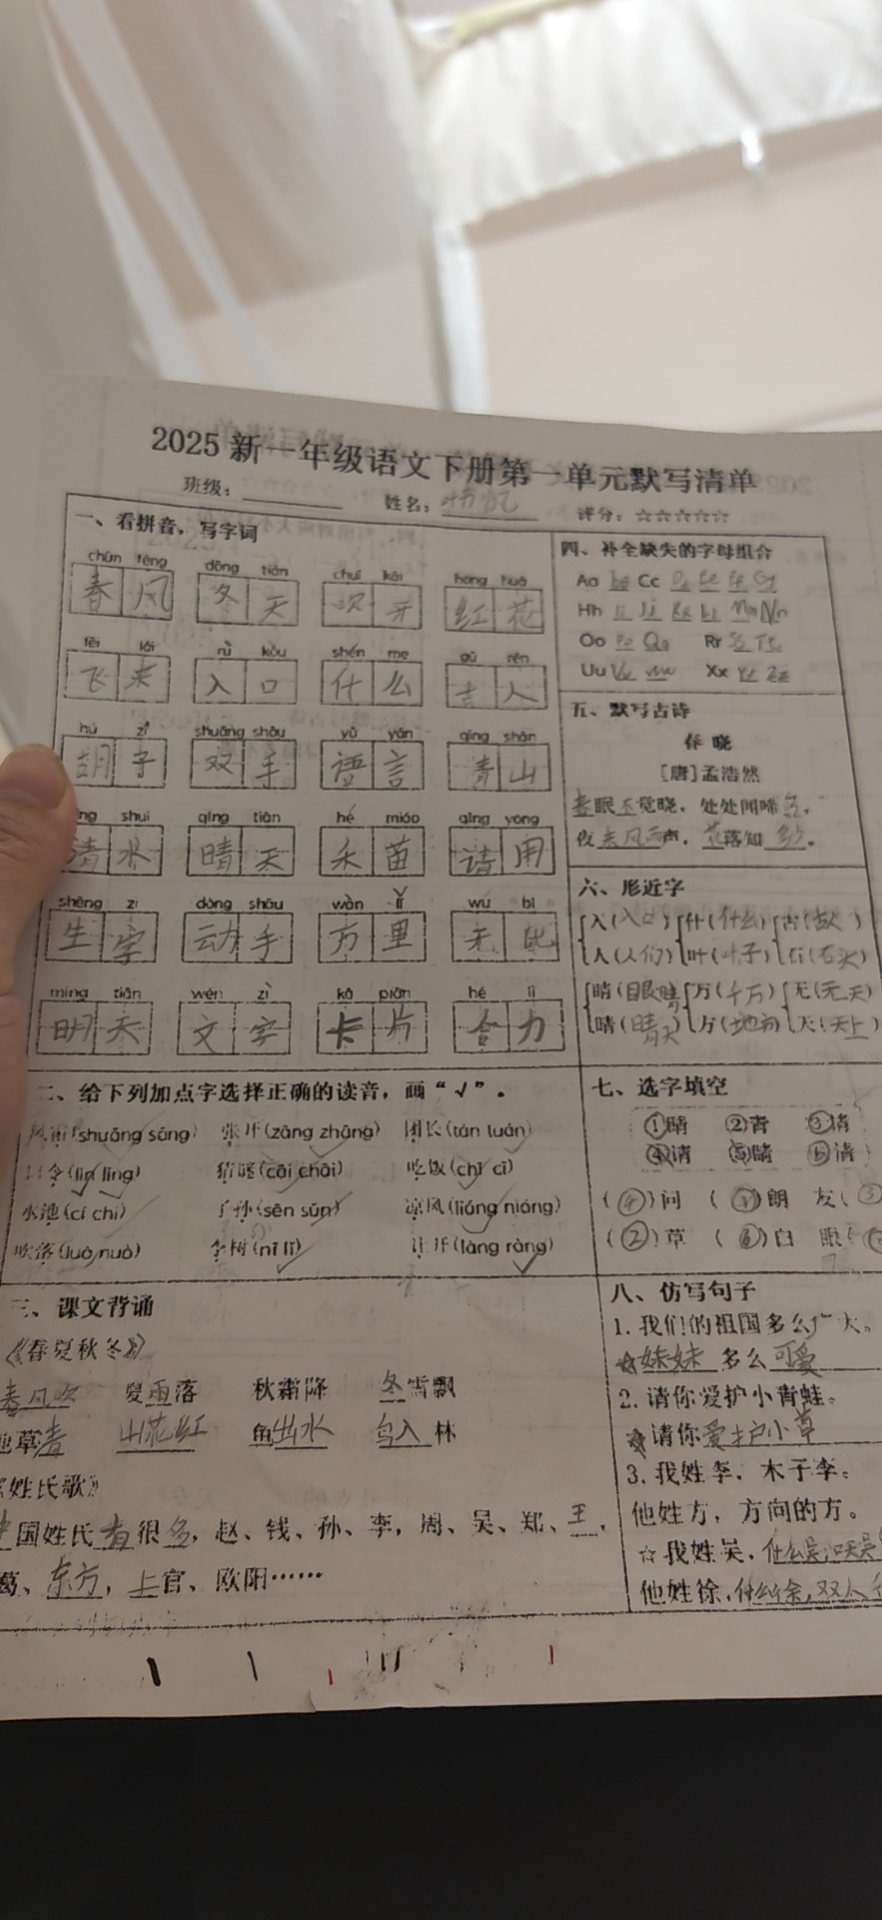 2025新一年级语文下册第一单元默写清单
班级： 姓名： 评分：☆☆☆☆☆
一、看拼音，写字词
chūn fēng dōng tiān chuī kāi hóng huā
春风 冬天 吹开 红花
fēi lái rù kǒu shén me gǔ rén
飞来 入口 什么 古人
hú zi shuāng shǒu yǔ yán qīng shān
胡子 双手 语言 青山
shuǐ qíng tiān hé miáo qǐng yòng
清水 晴天 禾苗 请用
shēng zì dòng shǒu wàn lǐ wú bǐ
生字 动手 万里 无比
míng tiān wén zì kǎ piàn hé lì
明天 文字 卡片 合力
二、给下列加点字选择正确的读音，画“√”。
风霜(shuāng sāng) 张开(zāng zhāng) 团长(tán luán)
口令(lin lìng) 猜谜(cāi chāi) 吃饭(chī cī)
水池(cí chí) 子孙(sēn sūn) 凉风(liáng niáng)
吹落(luò nuò) 李树(nǐ lǐ) 让开(làng ràng)
三、课文背诵
《春夏秋冬》
春风吹 夏雨落 秋霜降 冬雪飘
地草青 山花红 鱼出水 鸟入林
《姓氏歌》
国姓氏有很多，赵、钱、孙、李，周、吴、郑、王，
葛、东方，上官、欧阳……
四、补全缺失的字母组合
Aa Bb Cc Dd Ee Ff Gg
Hh Ii Jj Kk Ll Mm Nn
Oo Pp Qq Rr Ss Tt
Uu Vv Ww Xx Yy Zz
五、默写古诗
春 晓
[唐]孟浩然
春眠不觉晓，处处闻啼鸟，
夜来风雨声，花落知多少。
六、形近字
入(入口) 什(什么) 古(故)
人(人们) 叶(叶子) 石(石头)
睛(眼睛 万(千万) 无(无天)
晴(晴天) 方(地方) 天(天上)
七、选字填空
①晴 ②青 ③情
④请 ⑤睛 ⑥清
(④)问 (①)朗 友(③
(②)草 (⑥)白 眼(
八、仿写句子
1. 我们的祖国多么广大。
☆妹妹多么可爱
2. 请你爱护小青蛙。
☆请你爱护小草
3. 我姓李，木子李。
他姓方，方向的方。
☆我姓吴，什么吴，口天吴
他姓徐，什么徐，双人